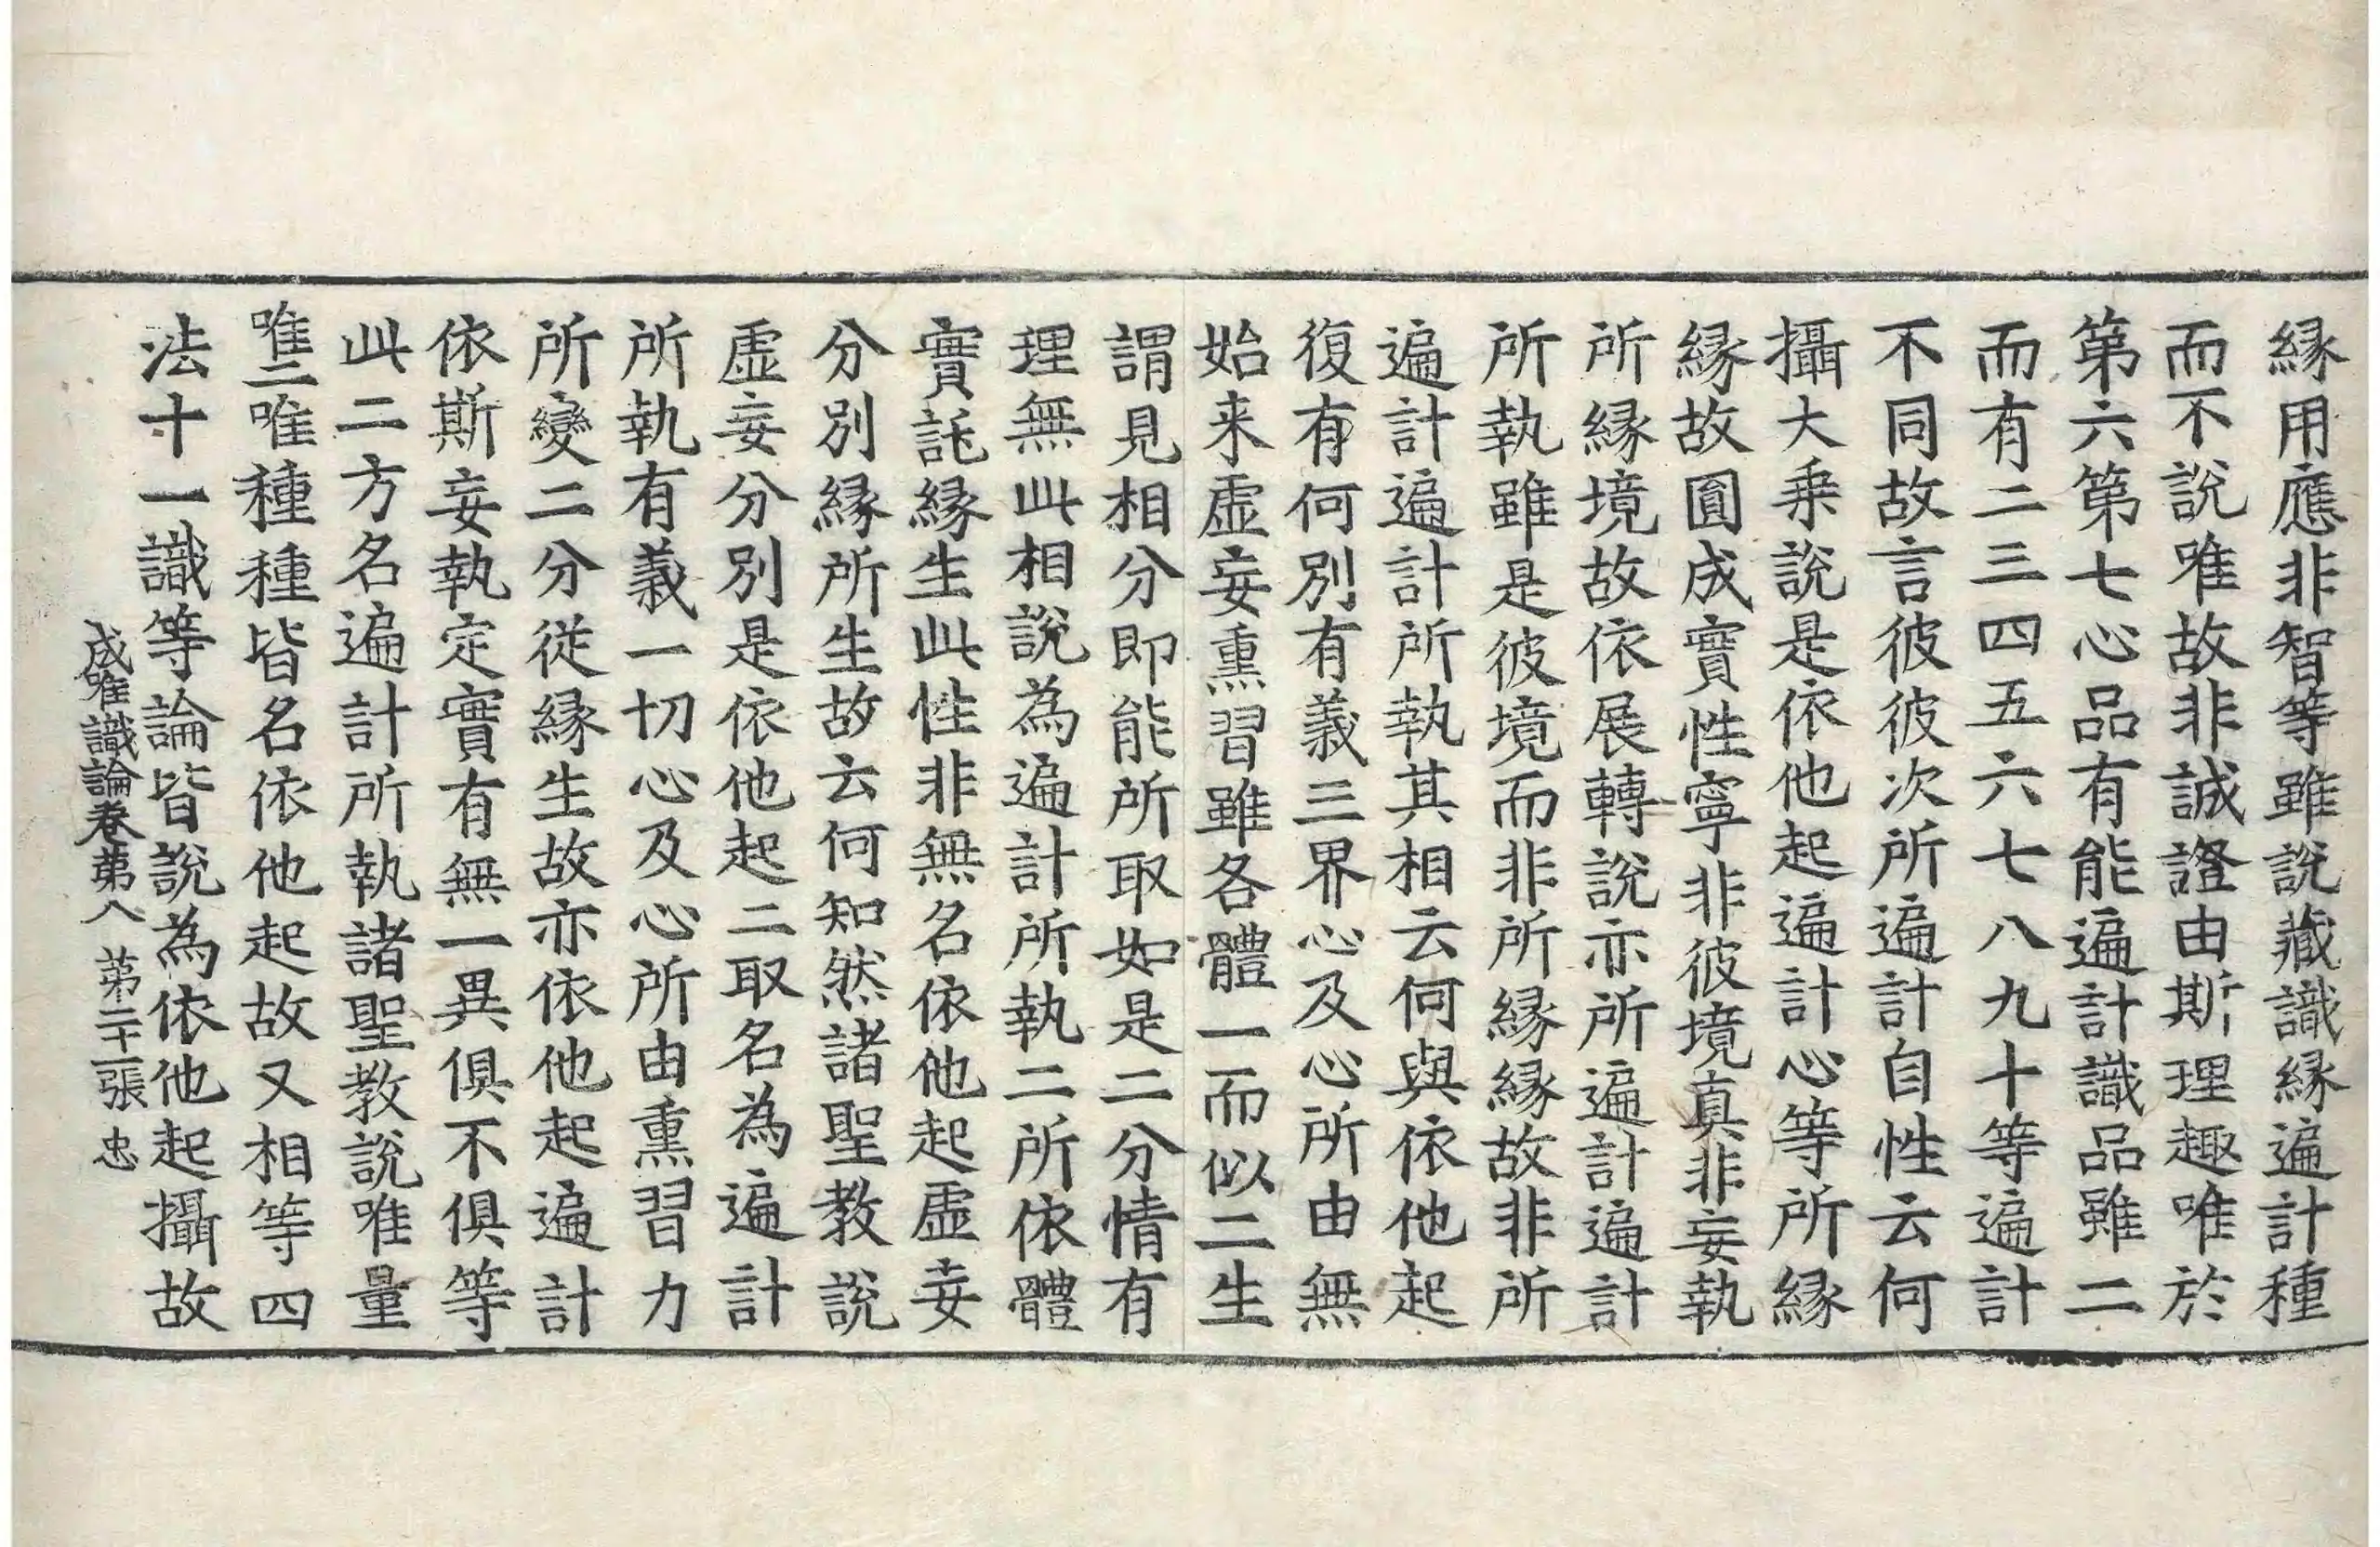 縁用應非智等雖說藏識縁遍計種
而不說唯故非誠證由斯理趣唯於
第六第七心品有能遍計識品雖二
而有二三四五六七八九十等遍計
不同故言彼彼次所遍計自性云何
攝大乗說是依他起遍計心等所縁
縁故圎成實性寧非彼境真非妄執
所縁境故依展轉說亦所遍計遍計
所執雖是彼境而非所縁縁故非所
遍計遍計所執其相云何與依他起
復有何別有義三界心及心所由無
始来虛妄熏習雖各體一而似二生
謂見相分即能所取如是二分情有
理無此相說為遍計所執二所依體
實託縁生此性非無名依他起虛妄
分別縁所生故云何知然諸聖教說
虛妄分別是依他起二取名為遍計
所執有義一切心及心所由熏習力
所變二分従縁生故亦依他起遍計
依斯妄執定實有無一異俱不俱等
此二方名遍計所執諸聖教說唯量
唯二唯種種皆名依他起故又相等四
法十一識等論皆說為依他起攝故
成唯識論卷第八 第二十一張 忠